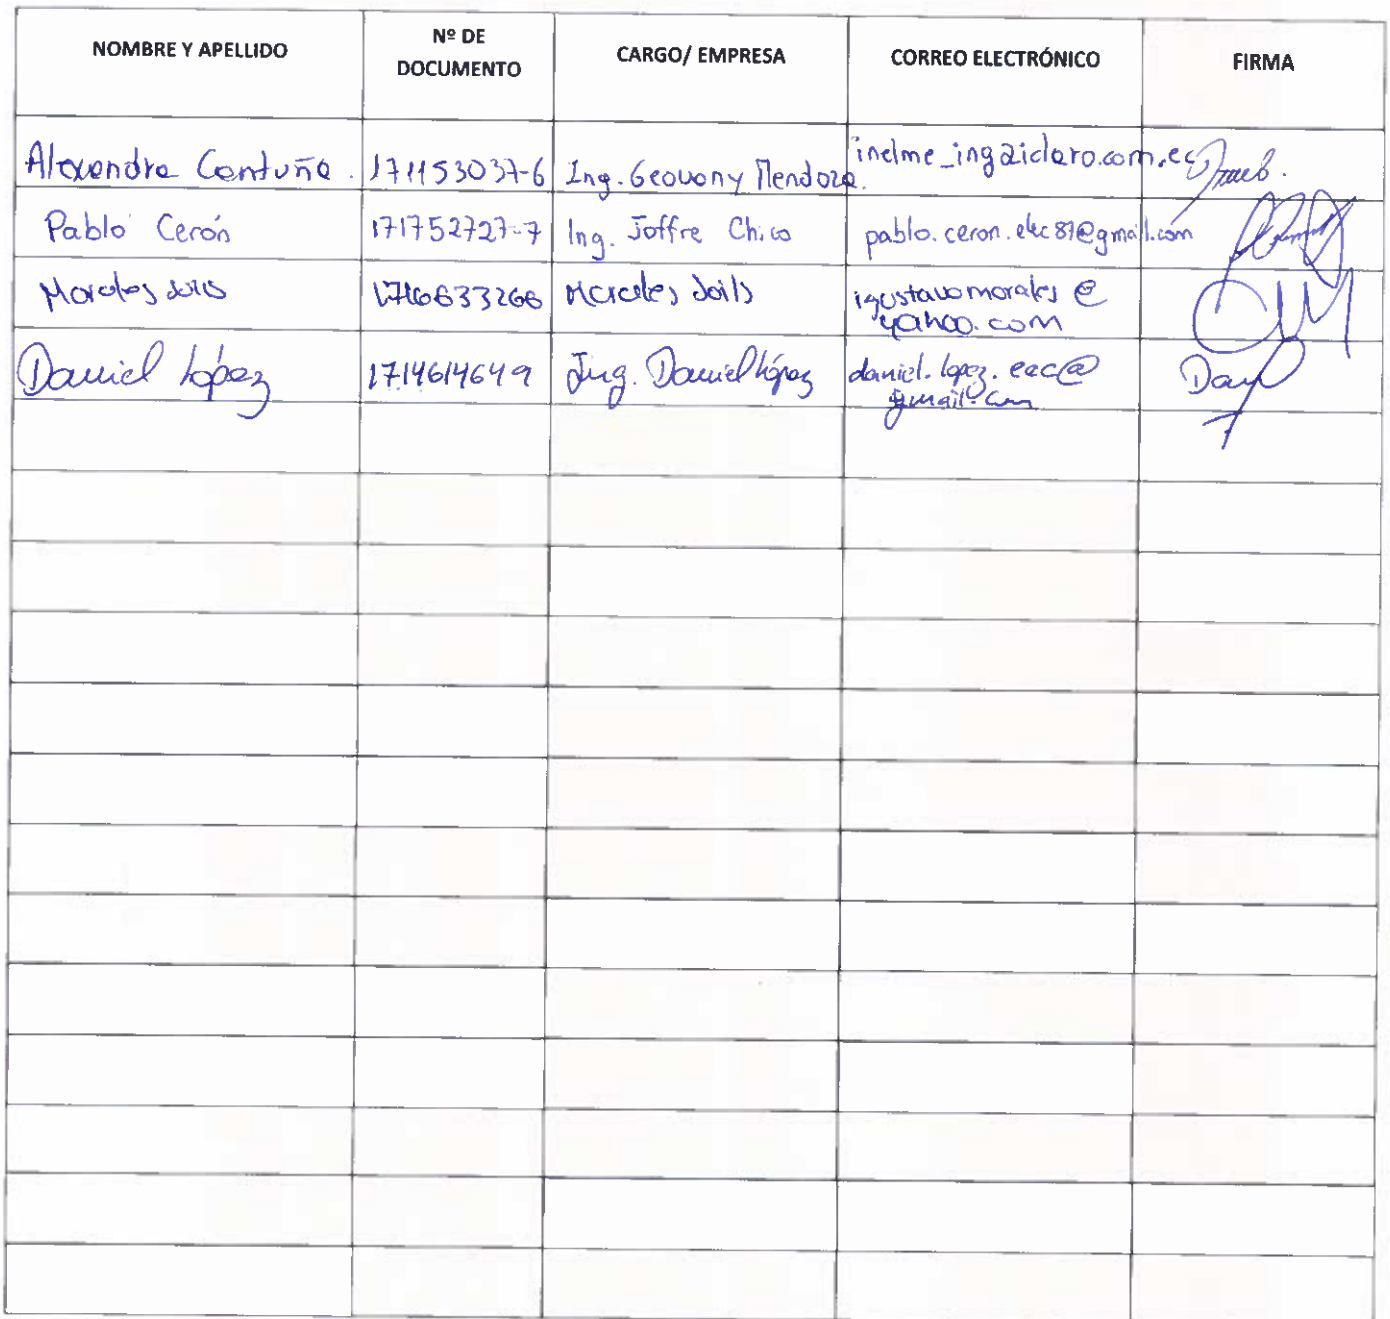 NOMBRE Y APELLIDO
Nº DE
DOCUMENTO
CARGO/ EMPRESA
CORREO ELECTRÓNICO
FIRMA
Alexandra Contuña. 171153037-6 Ing. Geovony Mendoza. inelme_ing@iclaro.com.ec
Pablo Cerón 171752727-7 Ing. Joffre Chico pablo.ceron.elec87@gmail.com
Morales Soils 1716633266 Morales Soils igustavomorales@
yahoo.com
Daniel López 1714614649 Ing. Daniel López daniel.lopez.eec@
gmail.com